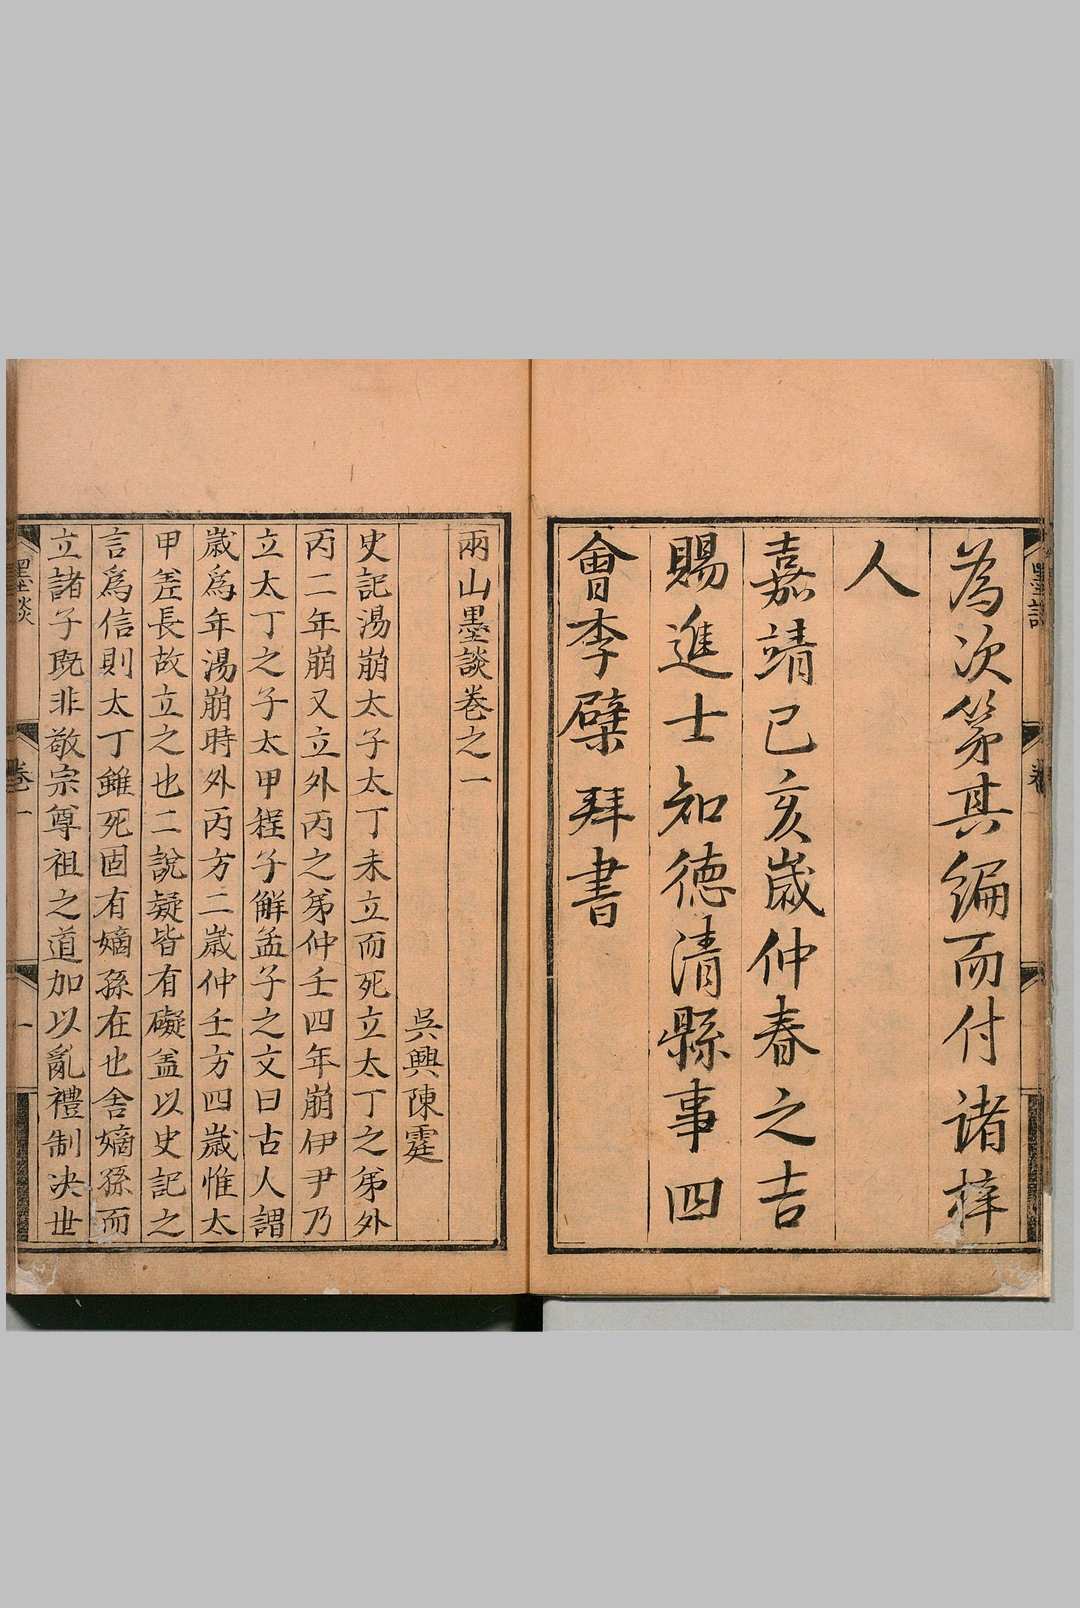 為次第其編而付諸梓
人
嘉靖己亥歲仲春之吉
賜進士知德清縣事四
會李檗拜書
兩山墨談卷之一
吳興陳霆
史記湯崩太子太丁未立而死立太丁之弟外
丙二年崩又立外丙之弟仲壬四年崩伊尹乃
立太丁之子太甲程子解孟子之文曰古人謂
歲爲年湯崩時外丙方二歲仲壬方四歲惟太
甲差長故立之也二說疑皆有礙盖以史記之
言爲信則太丁雖死固有嫡孫在也舍嫡孫而
立諸子既非敬宗尊祖之道加以亂禮制决世
墨談
卷一
一